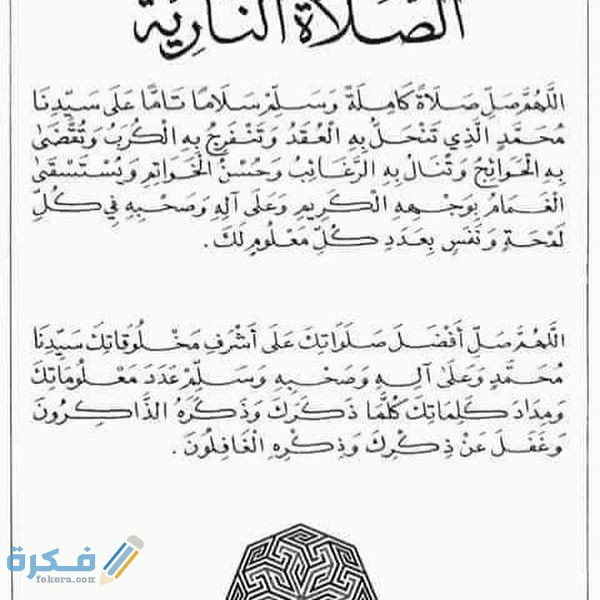 الصَّلَاةُ النَّارِيَّة
اللَّهُمَّ صَلِّ صَلَاةً كَامِلَةً وَسَلِّمْ سَلَامًا تَامًّا عَلَى سَيِّدِنَا
مُحَمَّدٍ الَّذِي تَنْحَلُّ بِهِ الْعُقَدُ وَتَنْفَرِجُ بِهِ الْكُرَبُ وَتُقْضَى
بِهِ الْحَوَائِجُ وَتُنَالُ بِهِ الرَّغَائِبُ وَحُسْنُ الْخَوَاتِمِ وَيُسْتَسْقَى
الْغَمَامُ بِوَجْهِهِ الْكَرِيمِ وَعَلَى آلِهِ وَصَحْبِهِ فِي كُلِّ
لَمْحَةٍ وَنَفَسٍ بِعَدَدِ كُلِّ مَعْلُومٍ لَكَ .
اللَّهُمَّ صَلِّ أَفْضَلَ صَلَوَاتِكَ عَلَى أَشْرَفِ مَخْلُوقَاتِكَ سَيِّدِنَا
مُحَمَّدٍ وَعَلَى آلِهِ وَصَحْبِهِ وَسَلِّمْ عَدَدَ مَعْلُومَاتِكَ
وَمِدَادَ كَلِمَاتِكَ كُلَّمَا ذَكَرَكَ وَذَكَرَهُ الذَّاكِرُونَ
وَغَفَلَ عَنْ ذِكْرِكَ وَذِكْرِهِ الْغَافِلُونَ .
فكرة
fokora.com